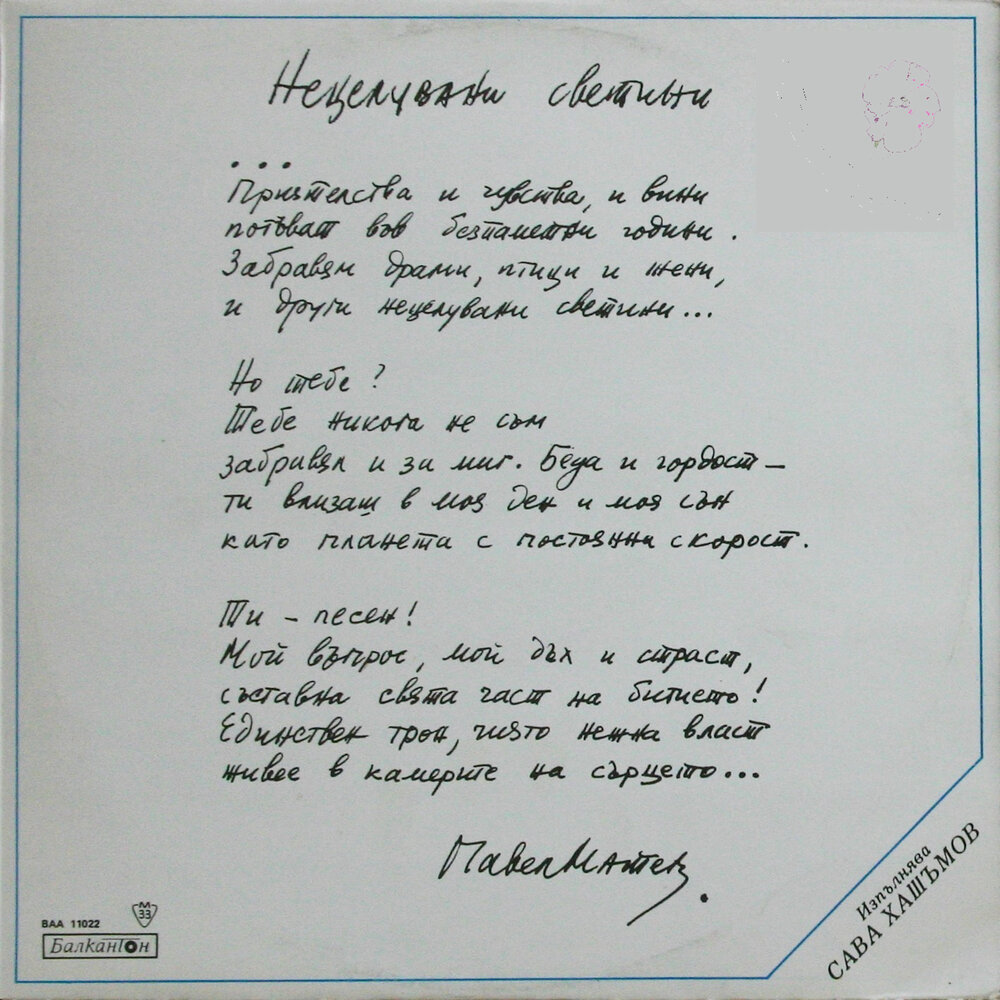 Нецелувани светини
...
Приятелства и чувства, и вини
потъват във безпаметни години.
Забравям драми, птици и жени,
и други нецелувани светини...
Но тебе?
Тебе никога не съм
забравял и за миг. Беда и гордост –
ти влизаш в моя ден и моя сън
като планета с постоянна скорост.
Ти – песен!
Мой въпрос, мой дъх и страст,
съставна свята част на битието!
Единствен трон, чиято нежна власт
живее в камерите на сърцето...
Павел Матев.
ВАА 11022
М
33
Балкантон
Изпълнява
САВА ХАШЪМОВ